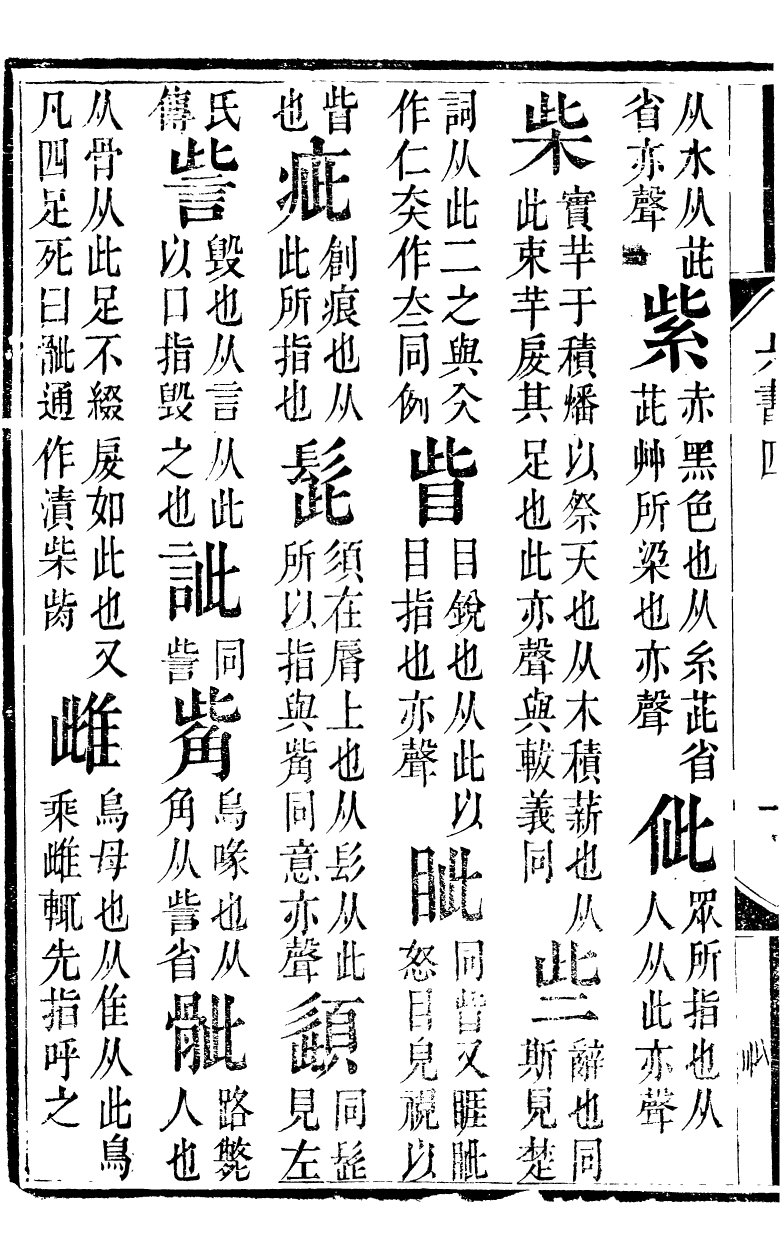 六書四
从水从茈省亦聲 紫 赤黑色也从糸茈省茈艸所染也亦聲 佌 眾所指也从人从此亦聲
柴 實芉于積燔以祭天也从木積薪也从此束芉其足也此亦聲與軷義同 些 辭也同斯見楚
詞从此二之與仌作仁太作夳同例 眥 目銳也从此以目指也亦聲 眦 同眥又睚眦怒目皃視以
眥也 疵 創痕也从此所指也 髭 須在脣上也从髟从此所以指與觜同意亦聲 頾 同髭見左
氏傳 訾 毀也从言从此以口指毀之也 訿 同訾 觜 鳥喙也从角从訾省 骴 路斃人也
从骨从此足不綴如此也又凡四足死曰骴通作漬柴胔 雌 鳥母也从隹从此鳥乘雌輒先指呼之